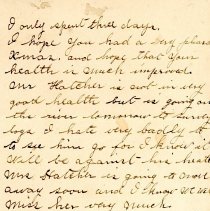 I only spent three days.
I hope you had a very pleas
Xmas and hope that your
health is much improved.
Mr Hatcher is not in very
good health but is going on
the river tomorrow to survey
logs I hate very badly
to see him go for I know it
will be against his
Mrs Hatcher is going to move
away soon and I know we
miss her very much